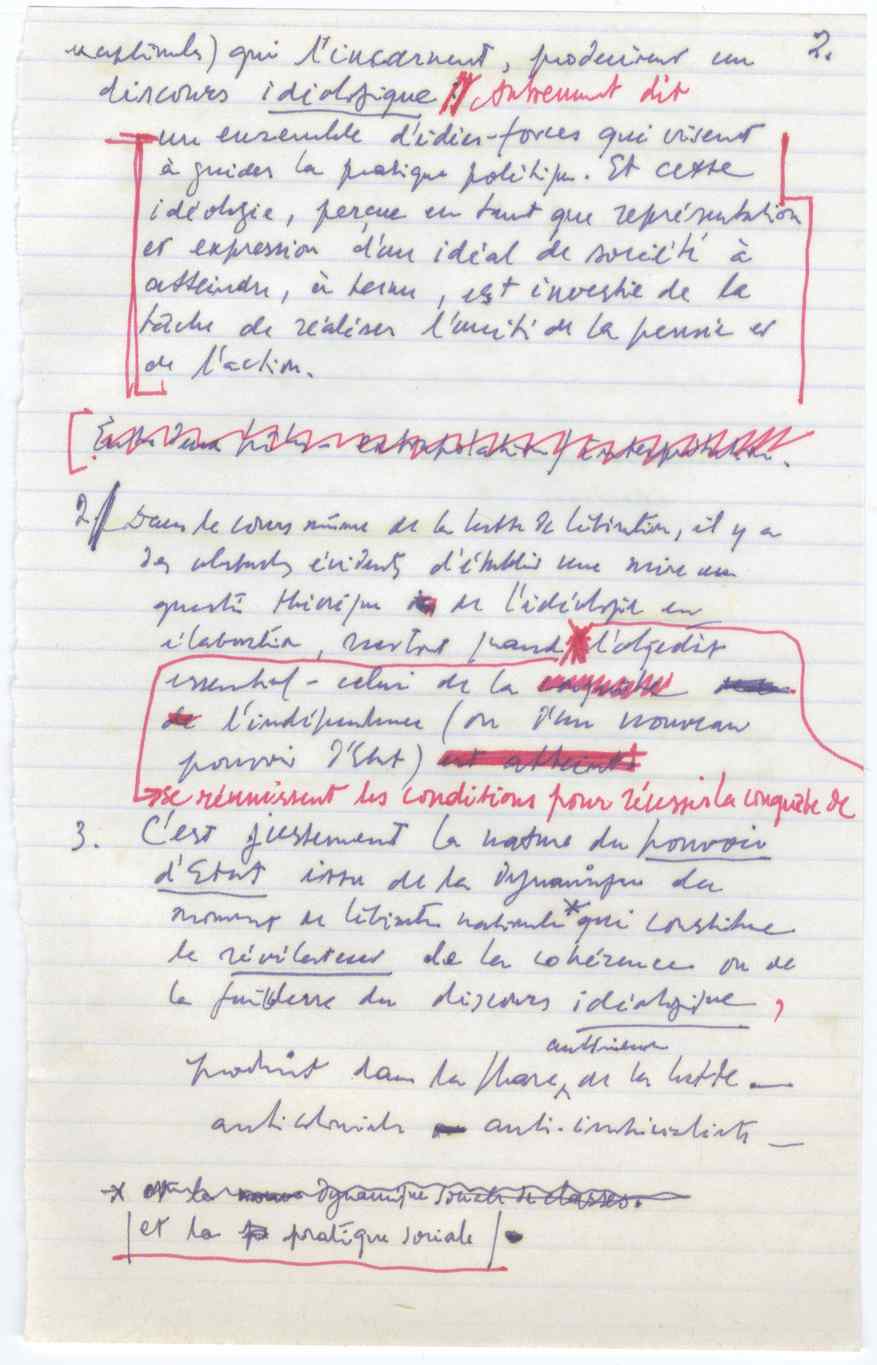 2.
qui l'incarnent, produisent un
discours idéologique Autrement dit
un ensemble d'idées-forces qui visent
à guider la pratique politique. Et cette
idéologie, perçue en tant que représentation
et expression d'un idéal de société à
atteindre, à terme, est investie de la
tâche de réaliser l'unité de la pensée et
de l'action.
2/ Dans le cours même de la lutte de libération, il y a
des obstacles évidents d'établir une mise en
question théorique de l'idéologie en
élaboration, surtout quand l'objectif
essentiel - celui de la conquête
de l'indépendance (ou d'un nouveau
pouvoir d'Etat) est atteint
se réunissent les conditions pour réussir la conquête de
3. C'est justement la nature du pouvoir
d'Etat issu de la dynamique du
moment de libération nationale* qui constitue
le révélateur de la cohérence ou de
la faiblesse du discours idéologique,
antérieure
produit dans la phase de la lutte
anticoloniale - anti-impérialiste -
* et la dynamique de classes.
et la pratique sociale